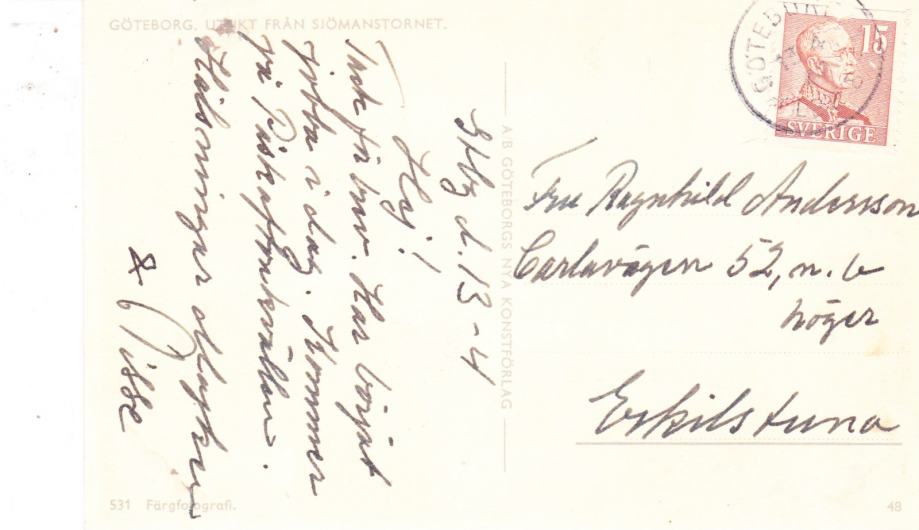 GÖTEBORG. UTSIKT FRÅN SJÖMANSTORNET.
Gtbg d. 13-4
Hej!
Tack för brev. Har börjat
jobba i dag. Kommer
på Påskaftonkvällen.
Hälsningar
Nisse
AB GÖTEBORGS NYA KONSTFÖRLAG
GÖTEBORG
15
SVERIGE
Fru Ragnhild Andersson
Carlavägen 52, n. b
höger
Eskilstuna
531 Färgfotografi.
48